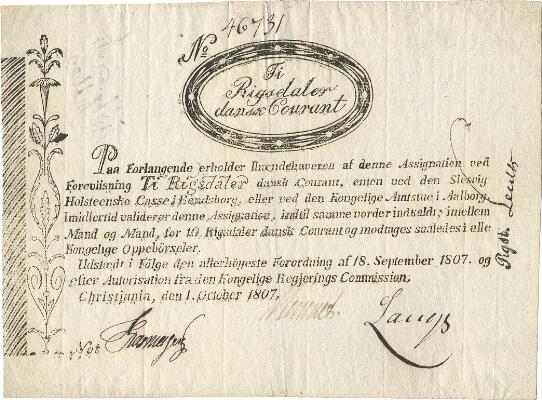 No 46731
Ti
Rigsdaler
dansk Courant
Paa Forlangende erholder Ihændehaveren af denne Assignation ved
Foreviisning Ti Rigsdaler dansk Courant, enten ved den Slesvig
Holsteenske Casse i Rendsborg, eller ved den Kongelige Amtstue i Aalborg
imidlertid validerer denne Assignation, indtil samme vorder indkaldt; imellem
Mand og Mand, for 10 Rigsdaler dansk Courant og modtages saaledes i alle
Kongelige Oppebörseler.
Udstædt i Fölge den allerhöieste Forordning af 18. September 1807. og
efter Autorisation fra den Kongelige Regjerings Commission.
Christiania, den 1. October 1807.